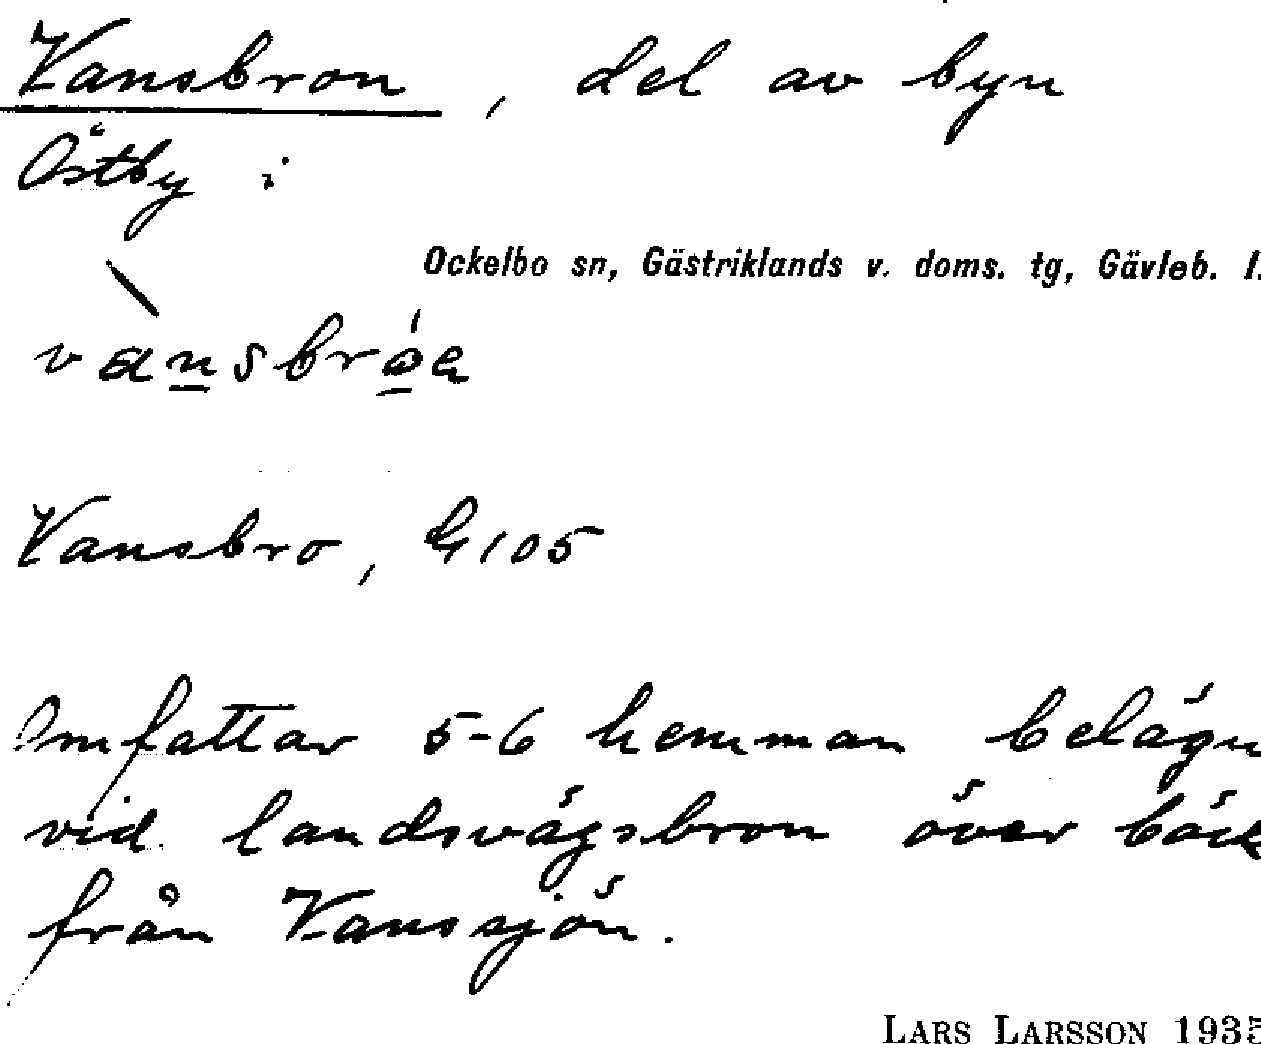 Vansbron, del av byn
Östby i
Ockelbo sn, Gästriklands v. doms. tg, Gävleb. l.
Vansbro, G105
Omfattar 5-6 hemman belägn
vid landsvägsbron över bäck
från Vanssjön.
LARS LARSSON 1935